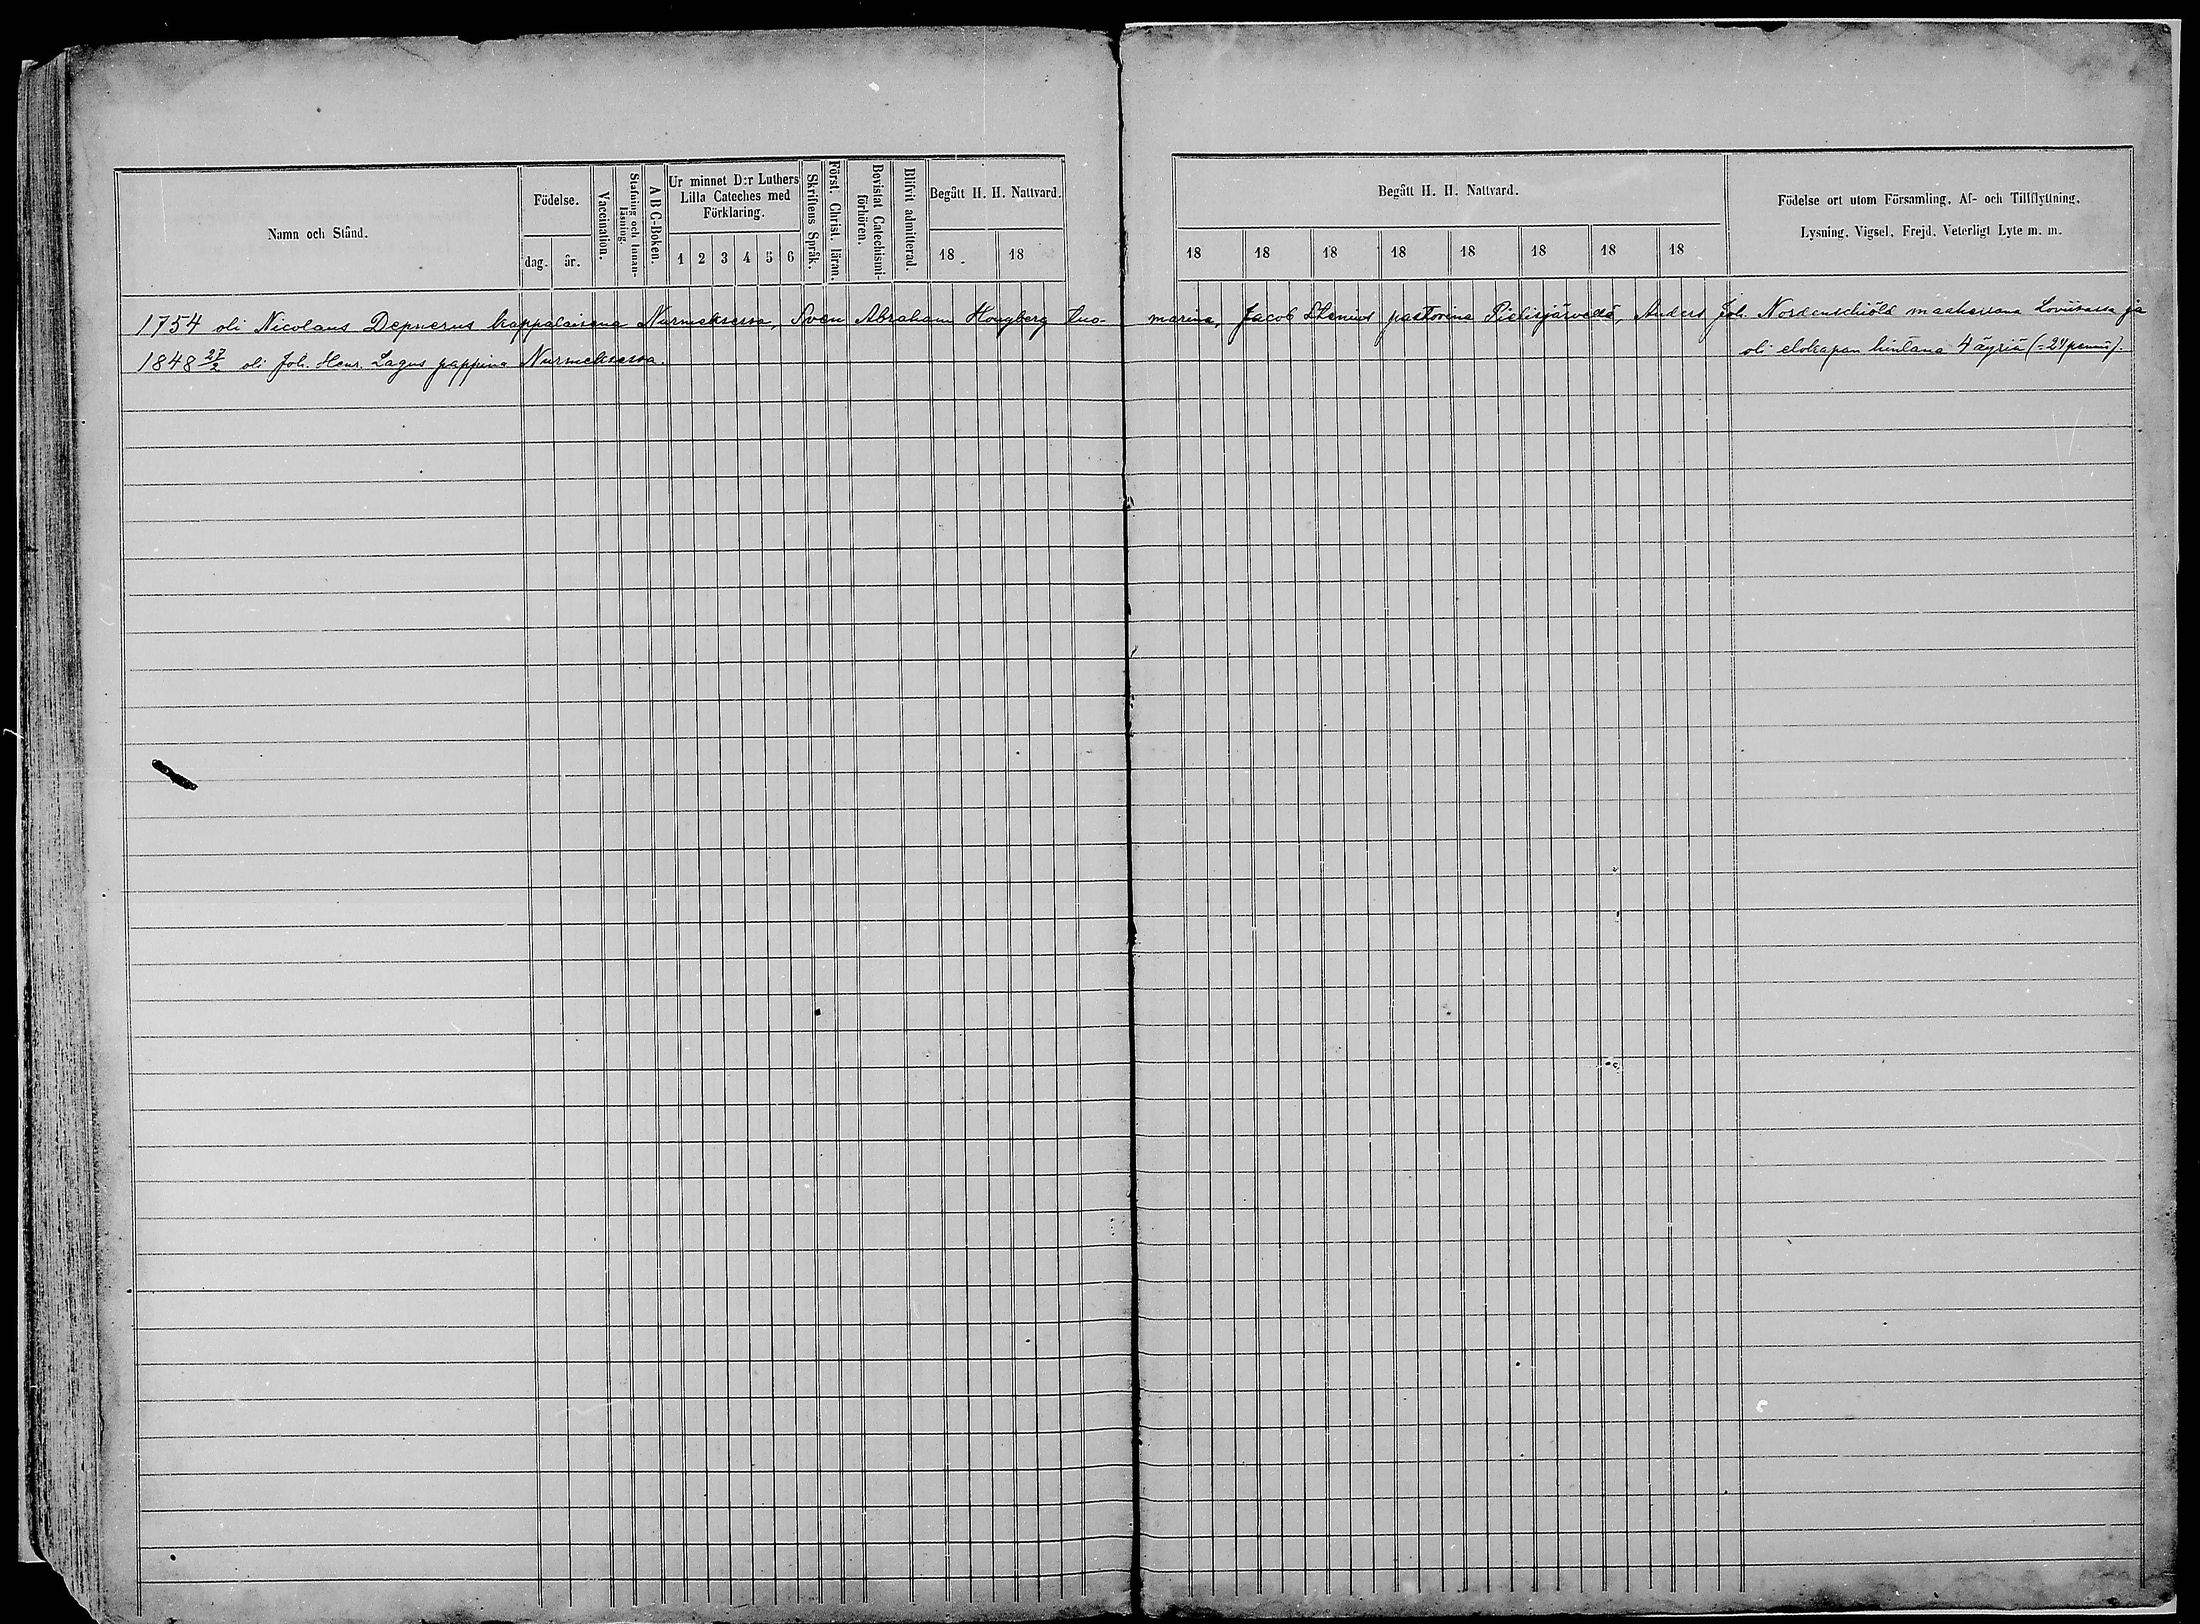 Namn och Stånd.
Födelse.
dag.
år.
Vaccination.
Stafning och Innan-
läsning.
ABC-Boken.
Ur minnet D:r Luthers
Lilla Cateches med
Förklaring.
1 2 3 4 5 6
Skriftens Språk.
Först. Christ. läran.
Bevistat Catechismi-
förhören.
Blifvit admitterad.
Begått H. H. Nattvard.
18 18
Begått H. H. Nattvard.
18 18 18 18 18 18 18 18
Födelse ort utom Församling, Af- och Tillflyttning,
Lysning, Vigsel, Frejd, Veterligt Lyte m. m.
1754 oli Nicolaus Depnerus kappalaisena Nurmeksessa, Sven Abraham Hougberg tuo- marina, Jacob Stenius pastorina Pielisjärvellä, Anders Joh. Nordenschiöld maaherrana Loviisassa ja
oli elokapan hintana 4 äyriä (=24 penniä).
1848 27/2 oli Joh. Henr. Lagus pappina Nurmeksessa.